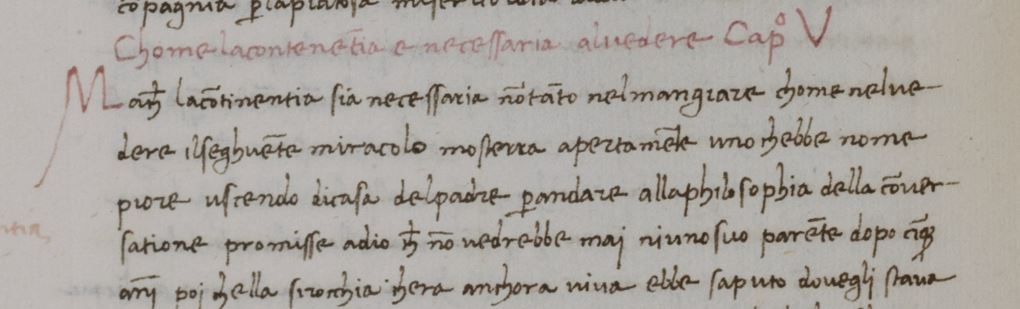 Chome lacontene͞tia e necessaria alvedere Capº V
Mach̄ laco͞tinentia sia necessaria no͞ ta͞to nelmangiare chome nelve-
dere ilseghue͞te miracolo mosterra apertame͞te uno chebbe nome
piore uscendo dicasa delpadre ꝑandare allaphilosophia della co͞ver-
satione promisse adio ch̄ no͞ vedrebbe mai niuno suo pare͞te dopo
anni poi chella sirocchia chera anchora viva ebbe saputo dovegli stava